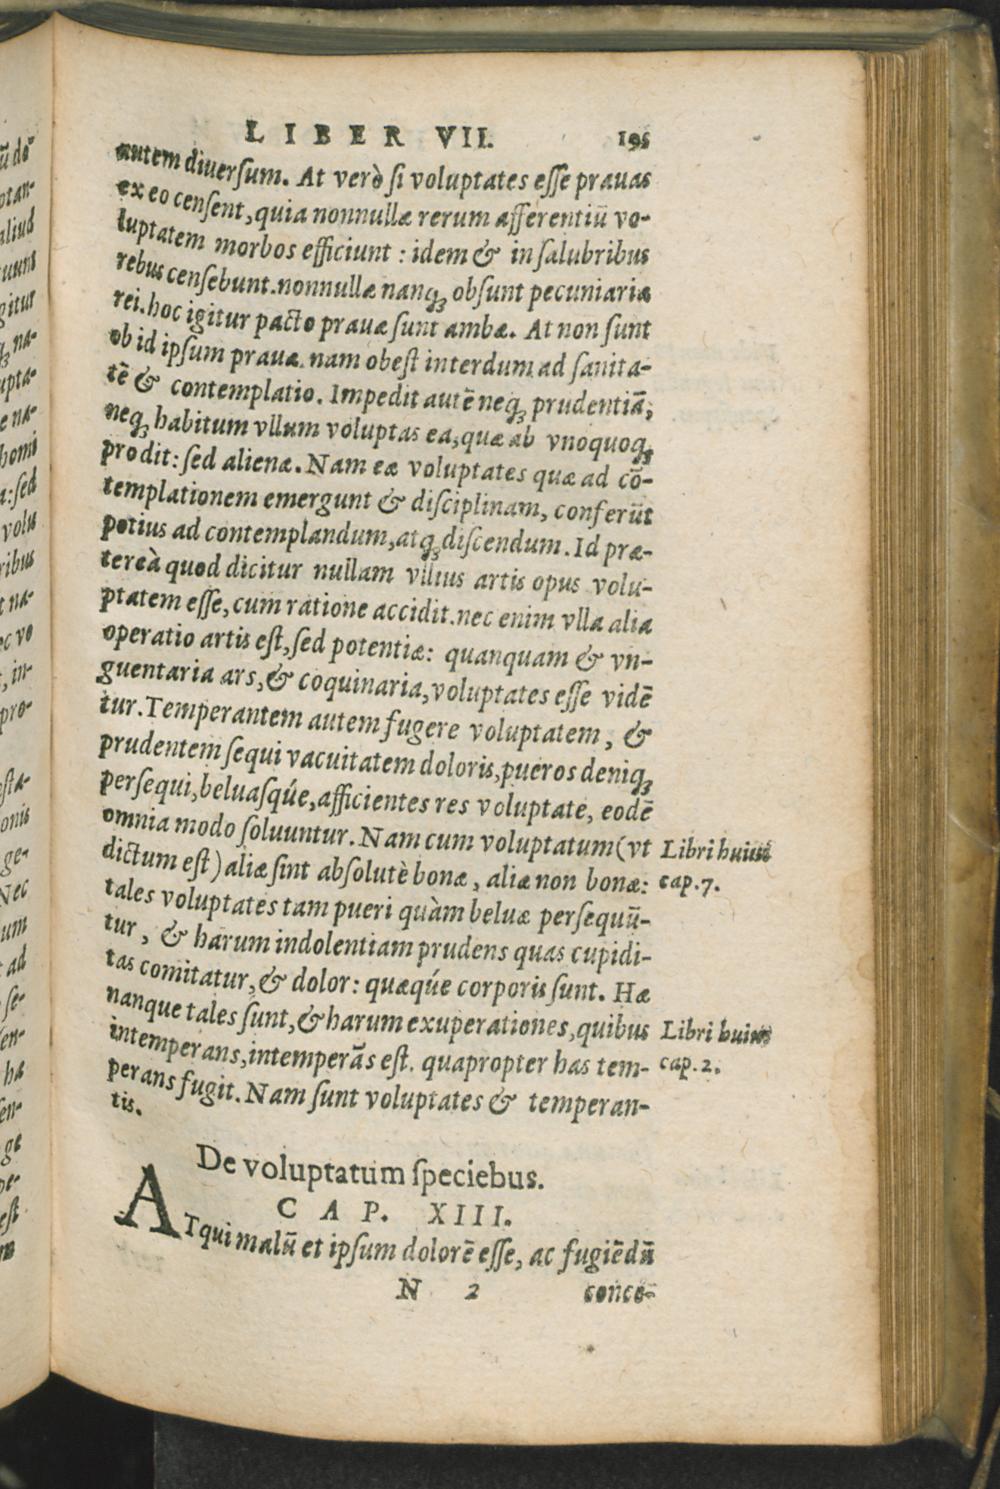 LIBER VII. 195
autem diuersum. At verò si voluptates esse prauas
ex eo censent, quia nonnullæ rerum afferentiũ vo-
luptatem morbos efficiunt : idem & in salubribus
rebus censebunt. nonnullæ nanq; obsunt pecuniariæ
rei. hoc igitur pacto prauæ sunt ambæ. At non sunt
ob id ipsum prauæ. nam obest interdum ad sanita-
tẽ & contemplatio. Impedit autẽ neq; prudentiã,
neq; habitum vllum voluptas ea, quæ ab vnoquoq;
prodit: sed alienæ. Nam eæ voluptates quæ ad cõ-
templationem emergunt & disciplinam, conferũt
potius ad contemplandum, atq; discendum. Id præ-
tereà quod dicitur nullam vllius artis opus volu-
ptatem esse, cum ratione accidit. nec enim vlla alia
operatio artis est, sed potentiæ: quanquam & vn-
guentaria ars, & coquinaria, voluptates esse vidẽ
tur. Temperantem autem fugere voluptatem, &
prudentem sequi vacuitatem doloris, pueros deniq;
persequi, beluasqúe, afficientes res voluptate, eodẽ
omnia modo soluuntur. Nam cum voluptatum (vt
dictum est) aliæ sint absolutè bonæ, aliæ non bonæ:
tales voluptates tam pueri quàm beluæ persequũ-
tur, & harum indolentiam prudens quas cupidi-
tas comitatur, & dolor: quæqúe corporis sunt. Hæ
nanque tales sunt, & harum exuperationes, quibus
intemperans, intemperãs est. quapropter has tem-
perans fugit. Nam sunt voluptates & temperan-
tis.
Libri huius
cap. 7.
Libri huius
cap. 2.
De voluptatum speciebus.
CAP. XIII.
ATqui malũ et ipsum dolorẽ esse, ac fugiẽdũ
N 2 conce-